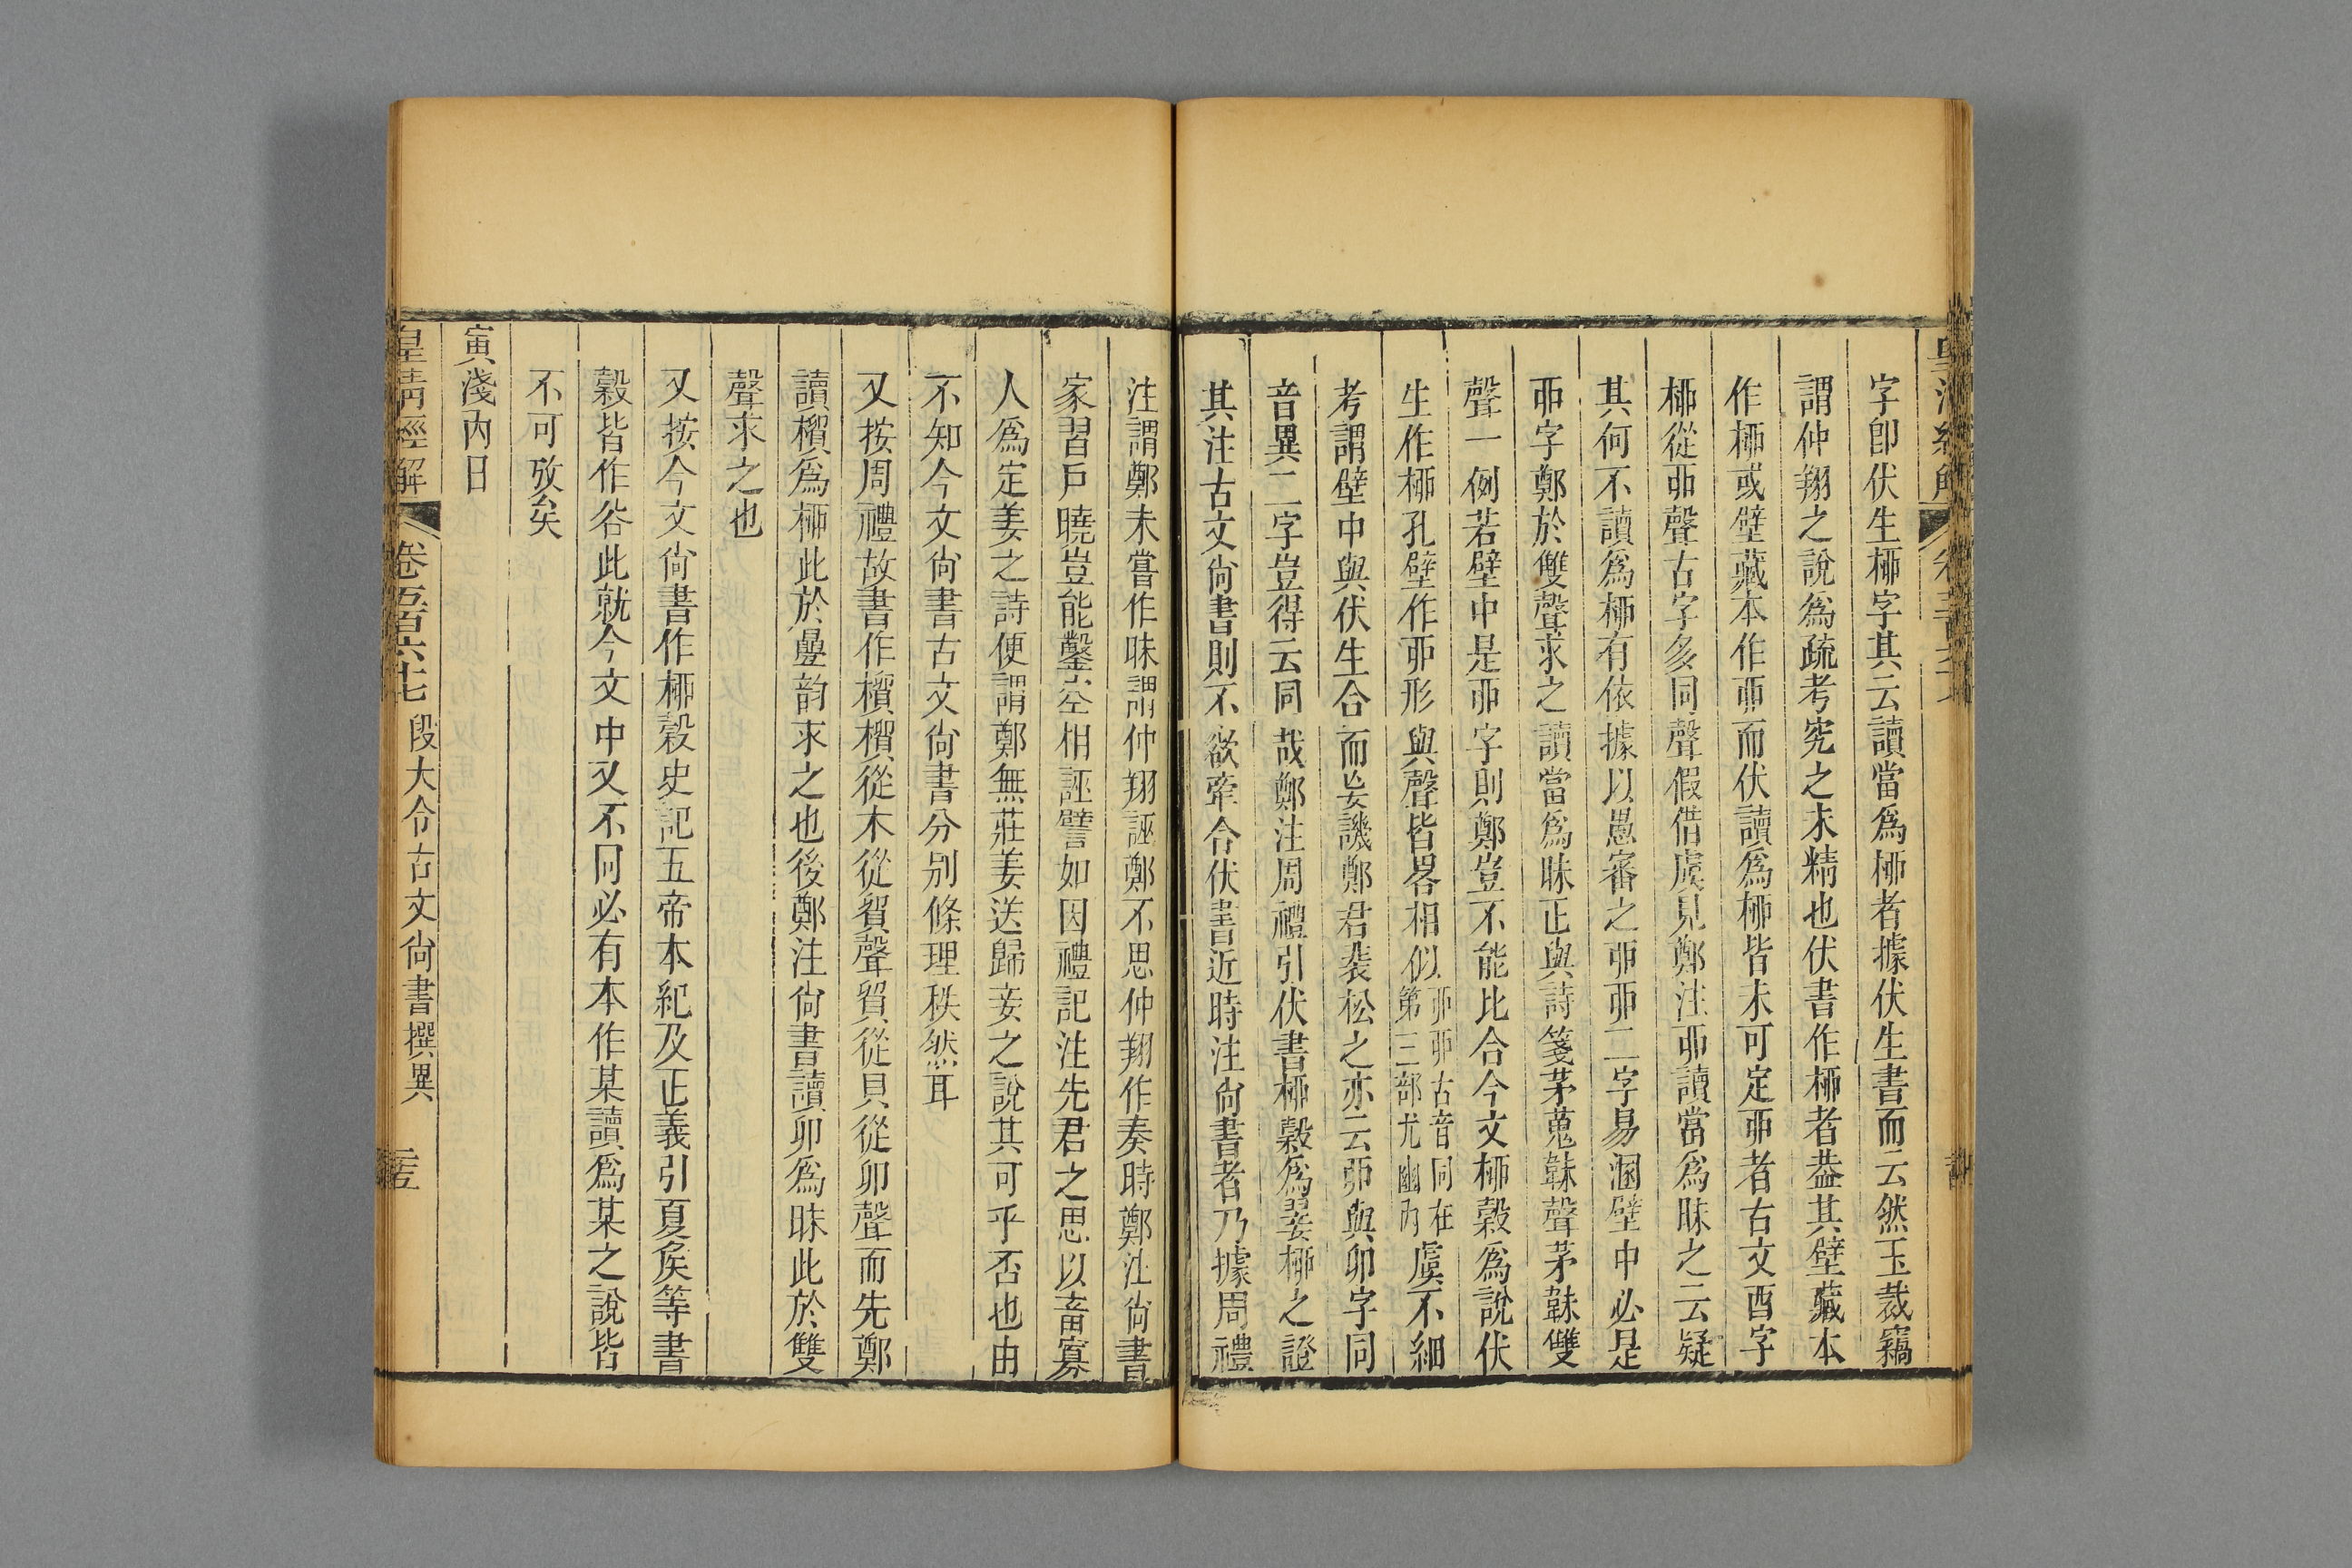 字卽伏生桺字其云讀當爲桺者據伏生書而云然玉裁竊
謂仲翔之說爲疏考究之未精也伏書作桺者葢其壁藏本
作桺或壁藏本作丣而伏讀爲桺皆未可定丣者古文酉字
桺從丣聲古字多同聲假借虞見鄭注丣讀當爲昧之云疑
其何不讀爲桺有依據以愚審之丣戼二字易溷壁中必是
戼字鄭於雙聲求之讀當爲昧正與詩箋茅蒐韎聲茅韎雙
聲一例若壁中是丣字則鄭豈不能比合今文桺穀爲說伏
生作桺孔壁作戼形與聲皆畧相似丣戼古音同在第三部尤幽內虞不細
考謂壁中與伏生合而妄譏鄭君裴松之亦云丣與卯字同
音異二字豈得云同哉鄭注周禮引伏書桺穀爲翣桺之證
其注古文尙書則不欲牽合伏書近時注尙書者乃據周禮
注謂鄭未嘗作昧謂仲翔誣鄭不思仲翔作奏時鄭注尙書
家習戶曉豈能鑿空相誣譬如因禮記注先君之思以畜寡
人爲定姜之詩便謂鄭無莊姜送歸妾之說其可乎否也由
不知今文尙書古文尙書分别條理秩然耳
又按周禮故書作櫝櫝從木從貿聲貿從貝從卯聲而先鄭
讀櫝爲桺此於曡韵求之也後鄭注尙書讀卯爲昧此於雙
聲求之也
又按今文尙書作桺穀史記五帝本紀及正義引夏矦等書
穀皆作谷此就今文中又不同必有本作某讀爲某之說皆
不可攷矣
寅淺內日
皇淸經解 卷五百六十七 段大令古文尙書撰異